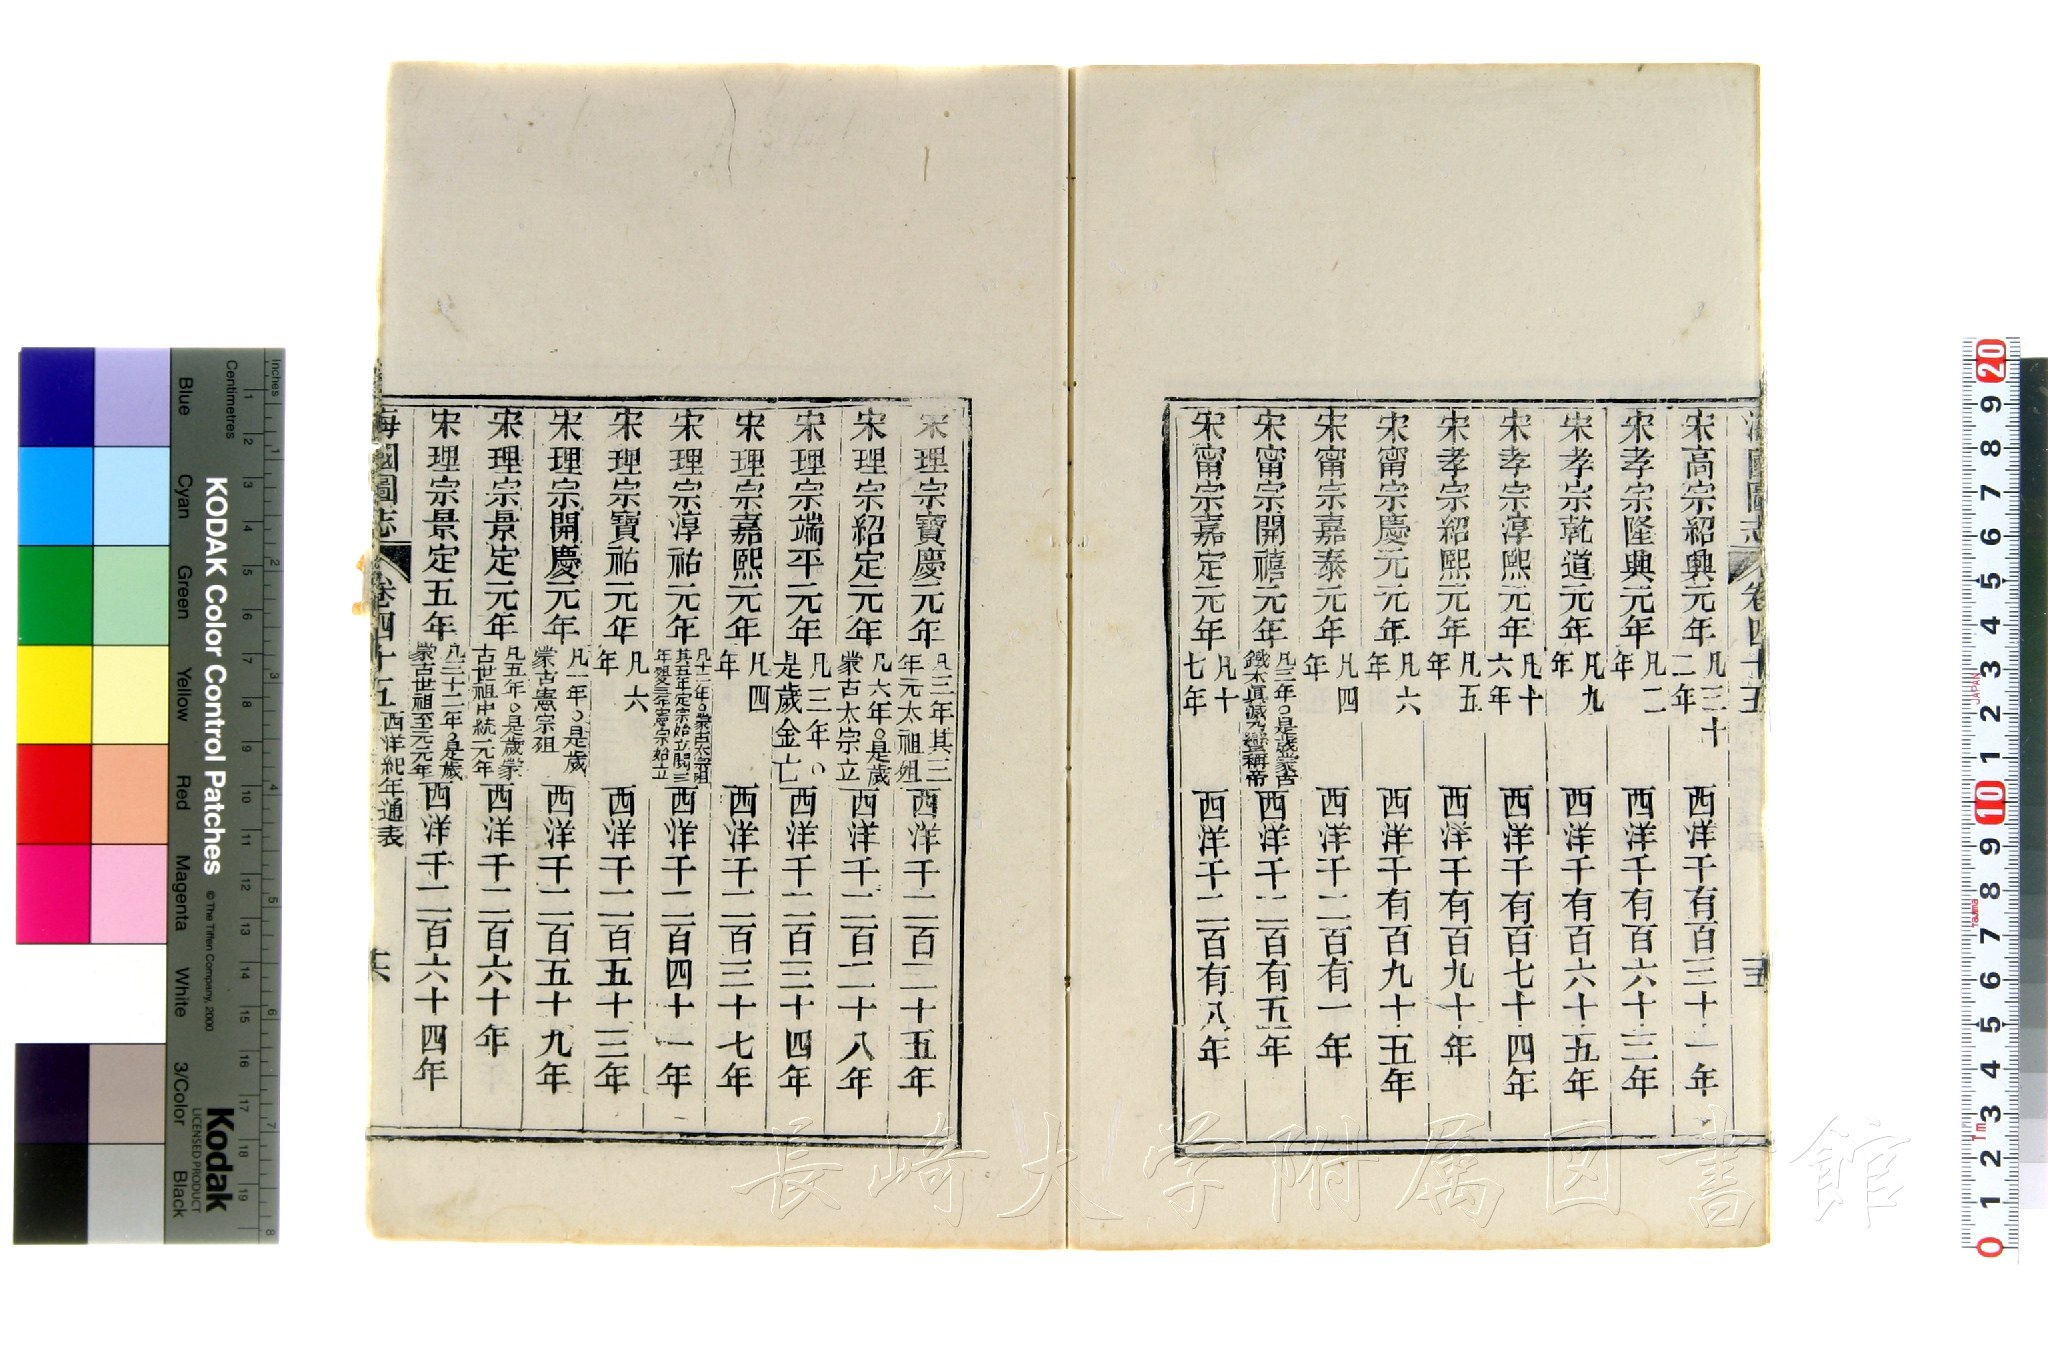 海國圖志 卷四十五
宋高宗紹興元年 凡三十二年 西洋千有百三十一年
宋孝宗隆興元年 凡二年 西洋千有百六十三年
宋孝宗乾道元年 凡九年 西洋千有百六十五年
宋孝宗淳熙元年 凡十六年 西洋千有百七十四年
宋孝宗紹熙元年 凡五年 西洋千有百九十年
宋甯宗慶元元年 凡六年 西洋千有百九十五年
宋甯宗嘉泰元年 凡四年 西洋千二百有一年
宋甯宗開禧元年 凡三年。是歲蒙古鐵木眞滅稱帝 西洋千二百有五年
宋甯宗嘉定元年 凡十七年 西洋千二百有八年
宋理宗寶慶元年 凡三年其三年元太祖殂 西洋千二百二十五年
宋理宗紹定元年 凡六年。是歲蒙古太宗立 西洋千二百二十八年
宋理宗端平元年 凡三年、是歲金亡 西洋千二百三十四年
宋理宗嘉熙元年 凡四年 西洋千二百三十七年
宋理宗淳祐元年 凡十二年。蒙古太宗殂其五年定宗始立閱三年殂又三年憲宗始立 西洋千二百四十一年
宋理宗寶祐元年 凡六年 西洋千二百五十三年
宋理宗開慶元年 凡一年。是歲蒙古憲宗殂 西洋千二百五十九年
宋理宗景定元年 凡五年。是歲蒙古世祖中統元年 西洋千二百六十年
宋理宗景定五年 凡三十一年。是歲蒙古世祖至元元年 西洋千二百六十四年
海國圖志 卷四十五 西洋紀年通表 十六
KODAK Color Control Patches
© The Tiffen Company, 2000
Kodak
LICENSED PRODUCT
Inches
Centimetres
Blue
Cyan
Green
Yellow
Red
Magenta
White
3/Color
Black
長崎大学附属図書館
JAPAN
Tajima